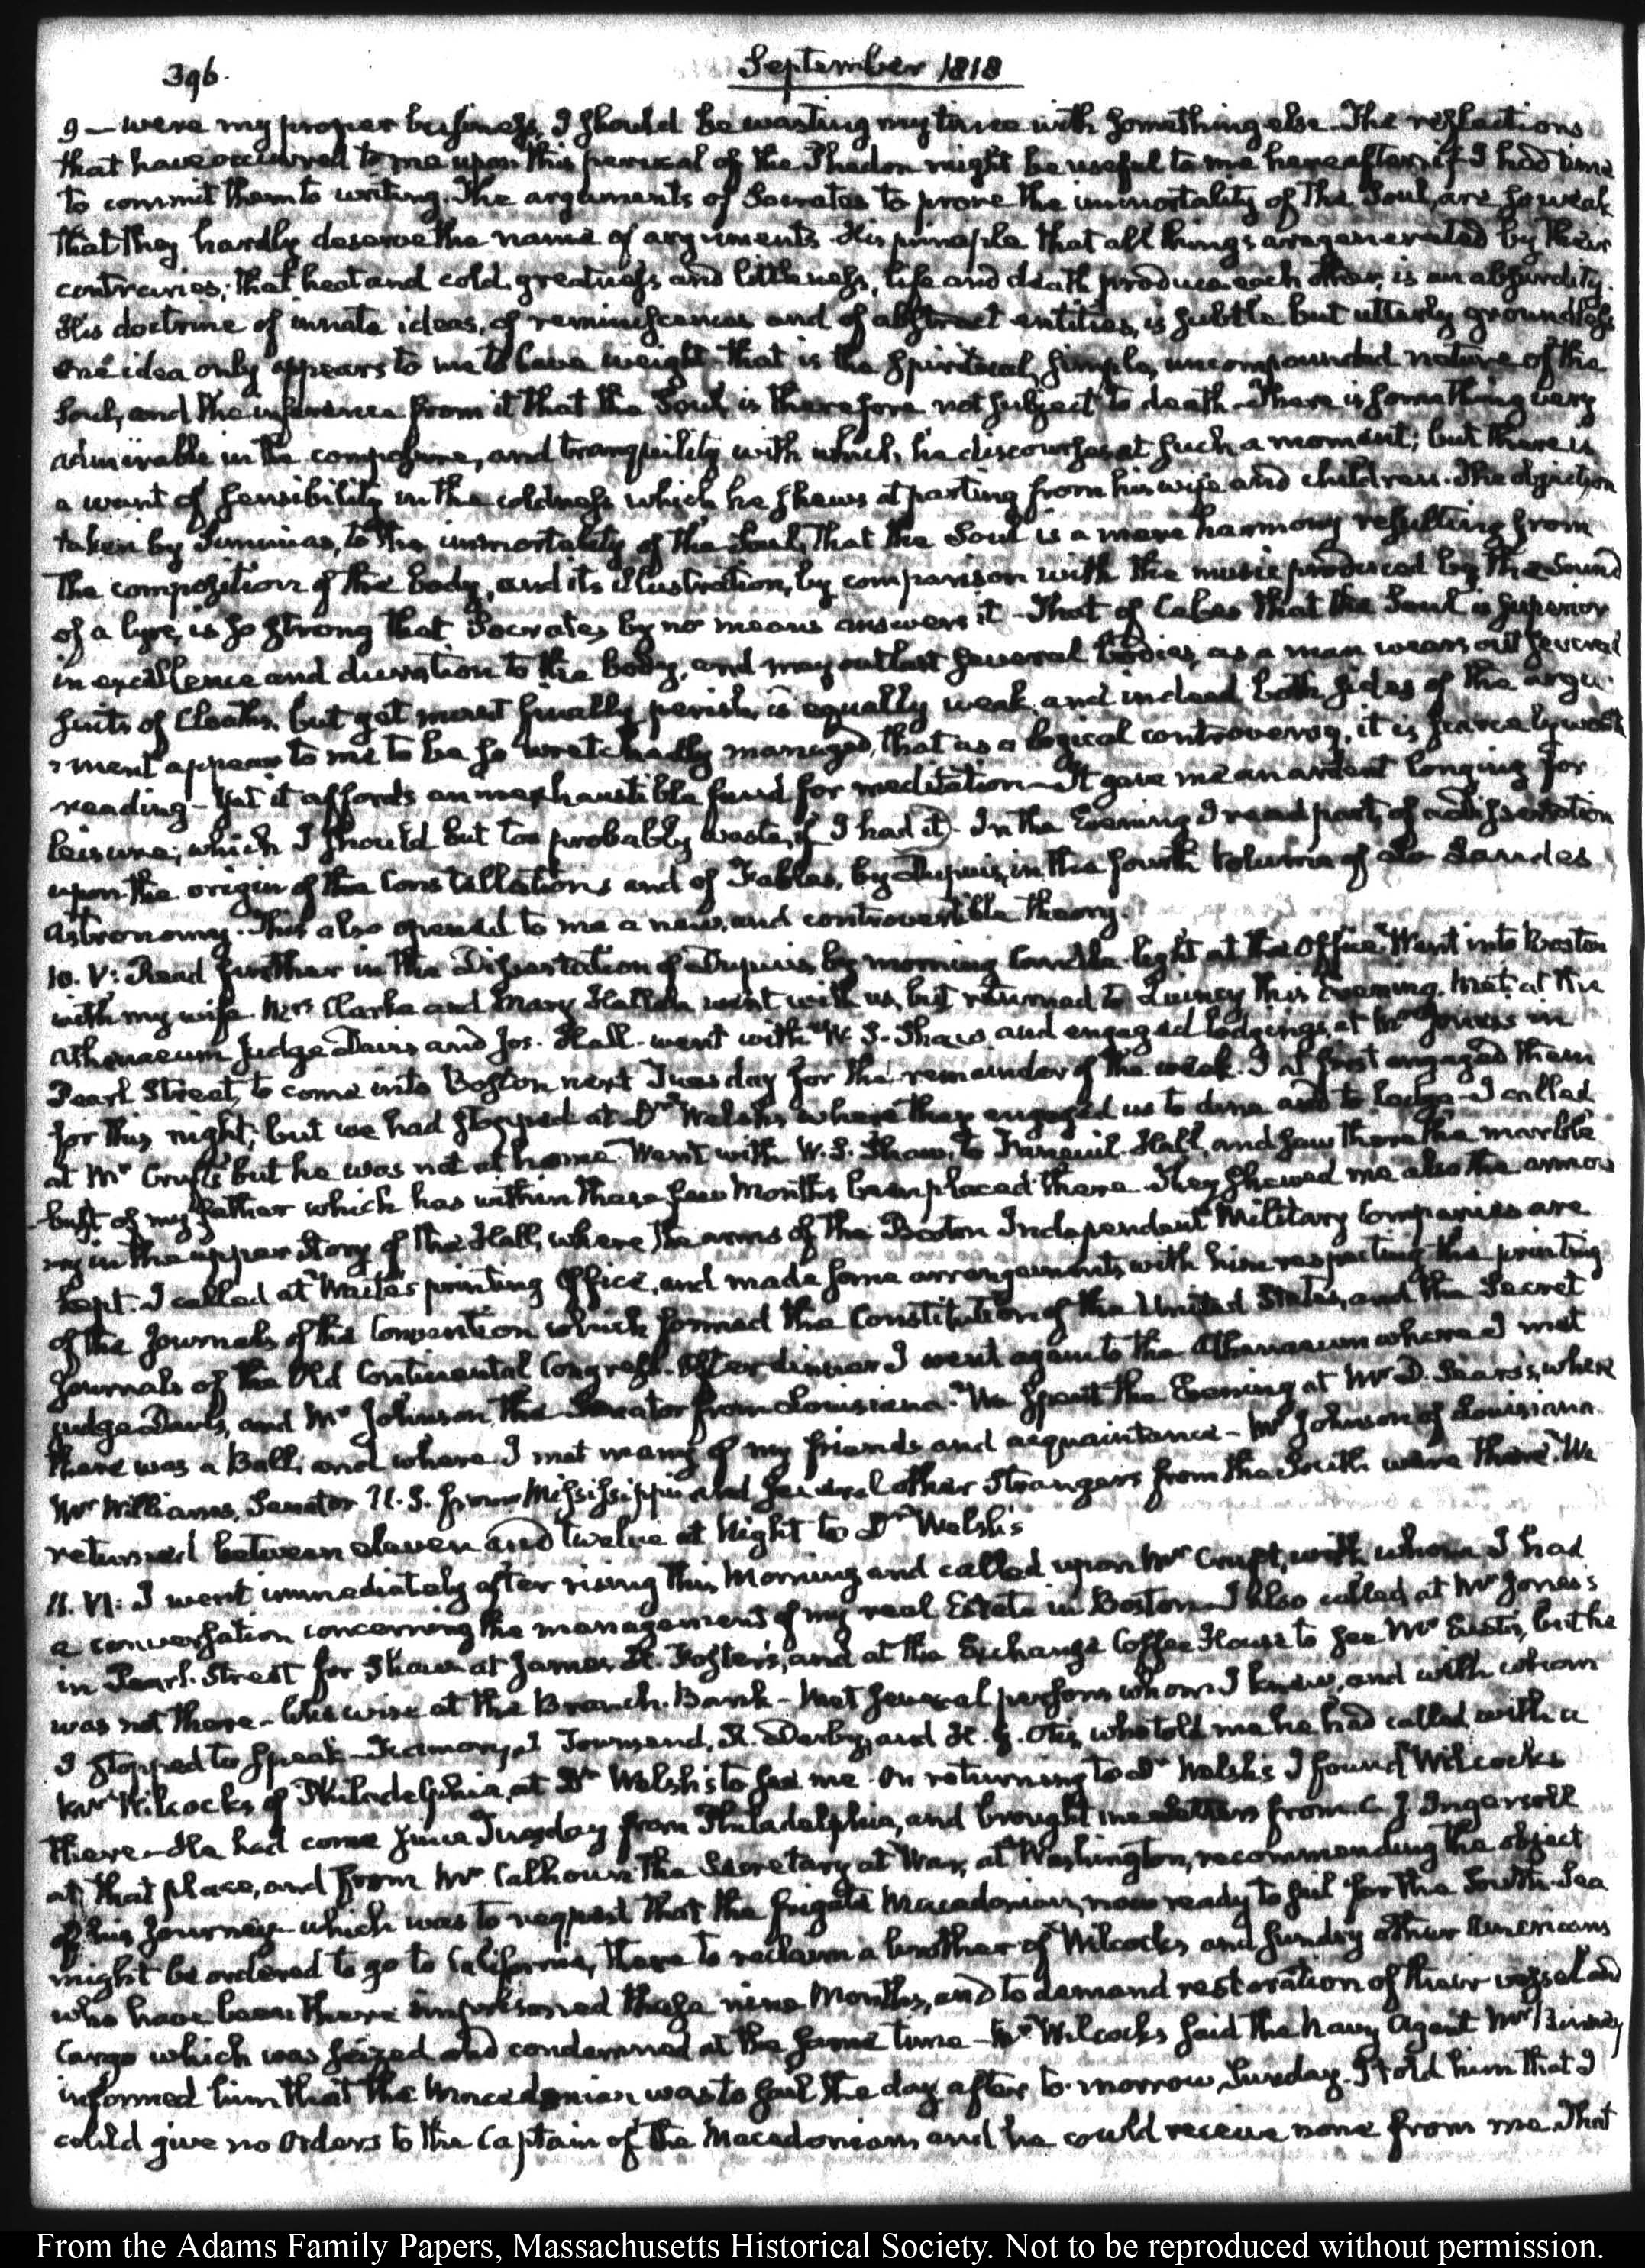 396.
September 1818
9 — were my proper business, I should be wasting my time with something else. The reflections
that have occurred to me upon this perusal of the Phedon might be useful to me hereafter, if I had time
to commit them to writing. The arguments of Socrates to prove the immortality of the Soul, are so weak
that they hardly deserve the name of arguments. His principle that all things are generated by their
contraries; that heat and cold, greatness and littleness, life and death produce each other, is an absurdity.
His doctrine of innate ideas, of reminiscences and of abstract entities, is subtle but utterly groundless
One idea only appears to me to have weight that is the spiritual, simple, uncompounded nature of the
Soul, and the inference from it that the Soul is therefore not subject to death. There is something very
admirable in the composure, and tranquility with which he discourses at such a moment; but there is
a want of sensibility in the coldness which he shews at parting from his wife and children. The objection
taken by Simmias, to the immortality of the Soul, that the Soul is a mere harmony resulting from
the composition of the body, and its illustration, by comparison with the music produced by the sound
of a lyre, is so strong that Socrates by no means answers it - That of Cebes that the Soul is superior
in excellence and duration to the body, and may outlast several bodies, as a man wears out several
suits of Cloaths, but yet must finally perish, is equally weak, and indeed both sides of the argu-
-ment appear to me to be so wretchedly managed, that as a logical controversy, it is scarcely worth
reading - Yet it affords an inexhaustible fund for meditation - It gave me an ardent longing for
leisure; which I should but too probably waste, if I had it. In the Evening I read part of a dissertation
upon the origin of the Constellations and of Fables, by Dupuis, in the fourth volume of La Lande's
Astronomy. This also opened to me a new, and controvertible theory.
10. V: Read further in the Dissertation of Dupuis, by morning candle light at the Office. Went into Boston
with my wife. Mrs Clarke and Mary Hellen went with us, but returned to Quincy this Evening. Met at the
Athenaeum Judge Davis and Jos. Hall. went with W. S. Shaw, and engaged lodgings, at Mrs Jones's in
Pearl Street, to come into Boston next Tuesday for the remainder of the week. I at first engaged them
for this night; but we had stopped at Dr Welsh's where they engaged us to dine and to lodge - I called
at Mr Cruft's but he was not at home. Went with W. S. Shaw, to Faneuil-Hall, and saw there the marble
bust of my father which has within these few Months been placed there. They shewed me also the armou
ry in the upper Story of the Hall, where the arms of the Boston Independent Military Companies are
kept. I called at Wait's printing Office, and made some arrangements with him respecting the printing
of the Journals of the Convention which formed the Constitution of the United States, and the Secret
Journals of the Old Continental Congress. After dinner I went again to the Athenaeum where I met
Judge Davis, and Mr Johnson, the Senator from Louisiana. We spent the Evening at Mr D. Sears's, where
there was a Ball, and where I met many of my friends and acquaintance - Mr Johnson of Louisiana.
Mr Williams, Senator U.S. from Mississippi and several other Strangers from the South were there. We
returned between eleven and twelve at Night to Dr Welsh's
11. VI: I went immediately after rising this Morning and called upon Mr Cruft, with whom I had
a conversation concerning the management of my real Estate in Boston - I also called at Mrs Jones's
in Pearl-Street for Shaw at James H. Foster's, and at the Exchange Coffee House to see Mr Eustis, but he
was not there - Likewise at the Branch-Bank - Met several persons whom I knew, and with whom
I stopped to speak - Townsend, R. Derby, and H. G. Otis, who told me he had called with a
Mr Wilcocks of Philadelphia, at Dr Welsh's to see me. On returning to Dr Welsh's I found Wilcocks
there - He had come since Tuesday from Philadelphia, and brought me Letters from C. J. Ingersoll
at that place, and from Mr Calhoun the Secretary at War, at Washington, recommending the object
of his journey - which was to request that the frigate Macedonian, now ready to sail for the South-Sea
might be ordered to go to California, there to reclaim a brother of Wilcocks and sundry other Americans
who have been there imprisoned these nine Months, and to demand restoration of their vessel and
Cargo which was seized and condemned at the same time - Mr Wilcocks said the Navy Agent Mr Binney
informed him that the Macedonian was to sail the day after to-morrow, Sunday. I told him that I
could give no Orders to the Captain of the Macedonian and he could receive none from me. That
From the Adams Family Papers, Massachusetts Historical Society. Not to be reproduced without permission.